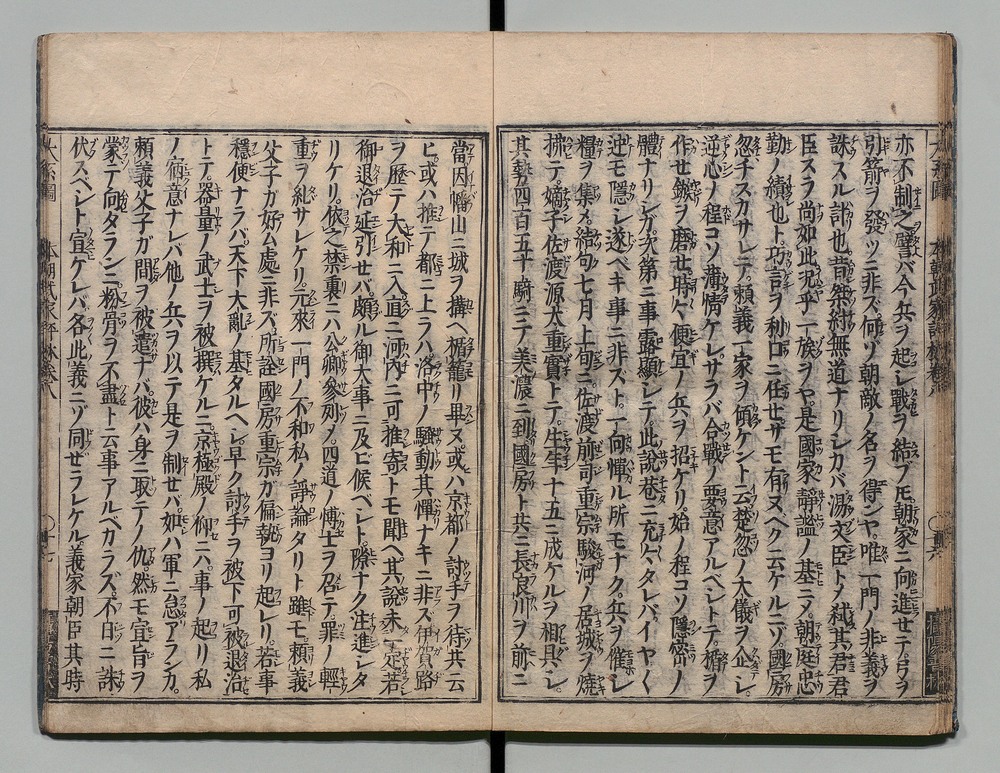 亦不制之譬バ今兵ヲ起シ戰ヲ結ブトモ朝家ニ向進セテ弓ヲ
引箭ヲ發ツニ非ズ何ゾ朝敵ノ名ヲ得ンヤ唯一門ノ非義ヲ
誅スル計也昔桀紂無道ナリシカバ湯文臣トメ弑其君君
臣スラ尚如此况乎一族ヲヤ是國家靜謐ノ基ニメ朝庭忠
勤ノ績也ト巧言ヲ利口ニ任せサモ有ヌヘク云ケルニゾ國房
忽チスカサレテ頼義一家ヲ傾ケント云楚忽ノ大儀ヲ企シ
逆心ノ程コソ薄情ケレサラバ合戰ノ要意アルベントテ楯ヲ
作せ鏃ヲ磨せ時々便宜ノ兵ヲ招ケリ始ノ程コソ隱密ノ
體ナリシガ次第ニ事露顯シテ此說巷ニ充々タレバイヤ〱
逆モ隱シ遂ベキ事ニ非ズト一向憚ル所モナク兵ヲ催シ
糧ヲ集メ結句七月上旬ニ佐渡前司重宗駿河ノ居城ヲ燒
拂テ嫡子佐渡源太重實トテ生年十五ニ成ケルヲ相具シ
其勢四百五十騎ニテ美濃ニ到國房ト共ニ長良川ヲ前ニ
當因幡山ニ城ヲ搆ヘ楯籠リ畢ヌ或ハ京都ノ討手ヲ待共云
ヒ或ハ推テ都ニ上ラハ洛中ノ騷動其憚ナキニ非ズ伊賀路
ヲ歷テ大和ニ入直ニ河內ニ可推寄トモ聞ヘ其說未一定若
御退治延引せバ頗ル御大事ニ及ビ候ベシト隙ナク注進シタ
リケリ依之禁裏ニハ公卿參列メ四道ノ博士ヲ召テ罪ノ輕
重ヲ糺サレケリ元來一門ノ不和私ノ諍論タリト雖モ頼義
父子ガ好ム處ニ非ズ所詮國房重宗ガ偏執ヨリ起レリ若事
穩便ナラバ天下大亂ノ基タルヘシ早ク討手ヲ被下可被退治
トテ器量ノ武士ヲ被撰ケルニ京極殿ノ仰ニハ事ノ起リ私
ノ宿意ナレバ他ノ兵ヲ以テ是ヲ制せバ如ハ軍ニ怠アランカ
頼義父子ガ間ヲ被遣ナバ彼ハ身ニ取テノ仇然モ宣旨ヲ
蒙テ向タランニ粉骨ヲ不盡ト云事アルベカラズ不日ニ誅
伏スベシト宣ケレバ各此義ニゾ同ぜラレケル義家朝臣其時